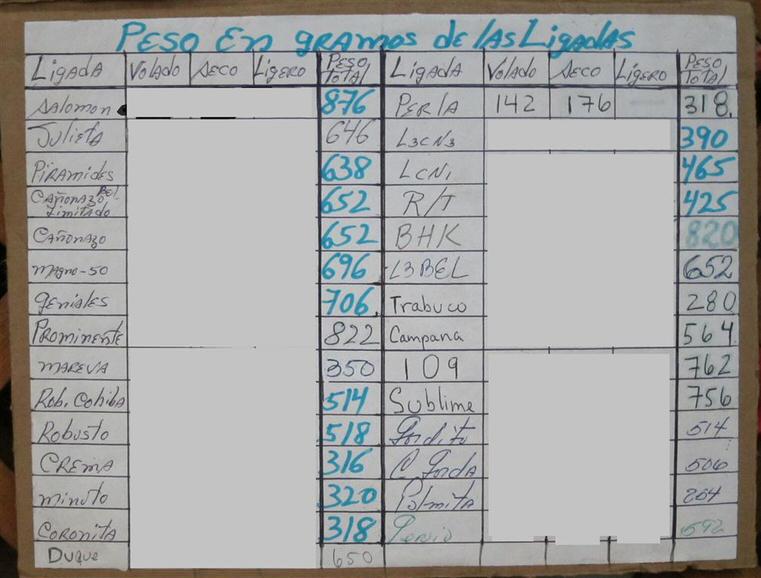 PESO En gramos de las Ligadas
Ligada Volado Seco Ligero Peso Total Ligada Volado Seco Ligero Peso Total
Salomon 876 PERLA 142 176 318.
Julieta 646 L3CN3 390
Piramides 638 LCN1 465
Cañonazo Bel. Limitado 652 R/T 425
Cañonazo 652 BHK 820
magno-50 696 L3BEL 652
geniales 706. Trabuco 280
Prominente 822 Campana 564
mareva 350 109 762
Rob. Cohiba 514 Sublime 756
Robusto 518 Gordito 514
Crema 316 C Gorda 506
minuto 320 Palmita 264
Coronita 318 592
Duque 650